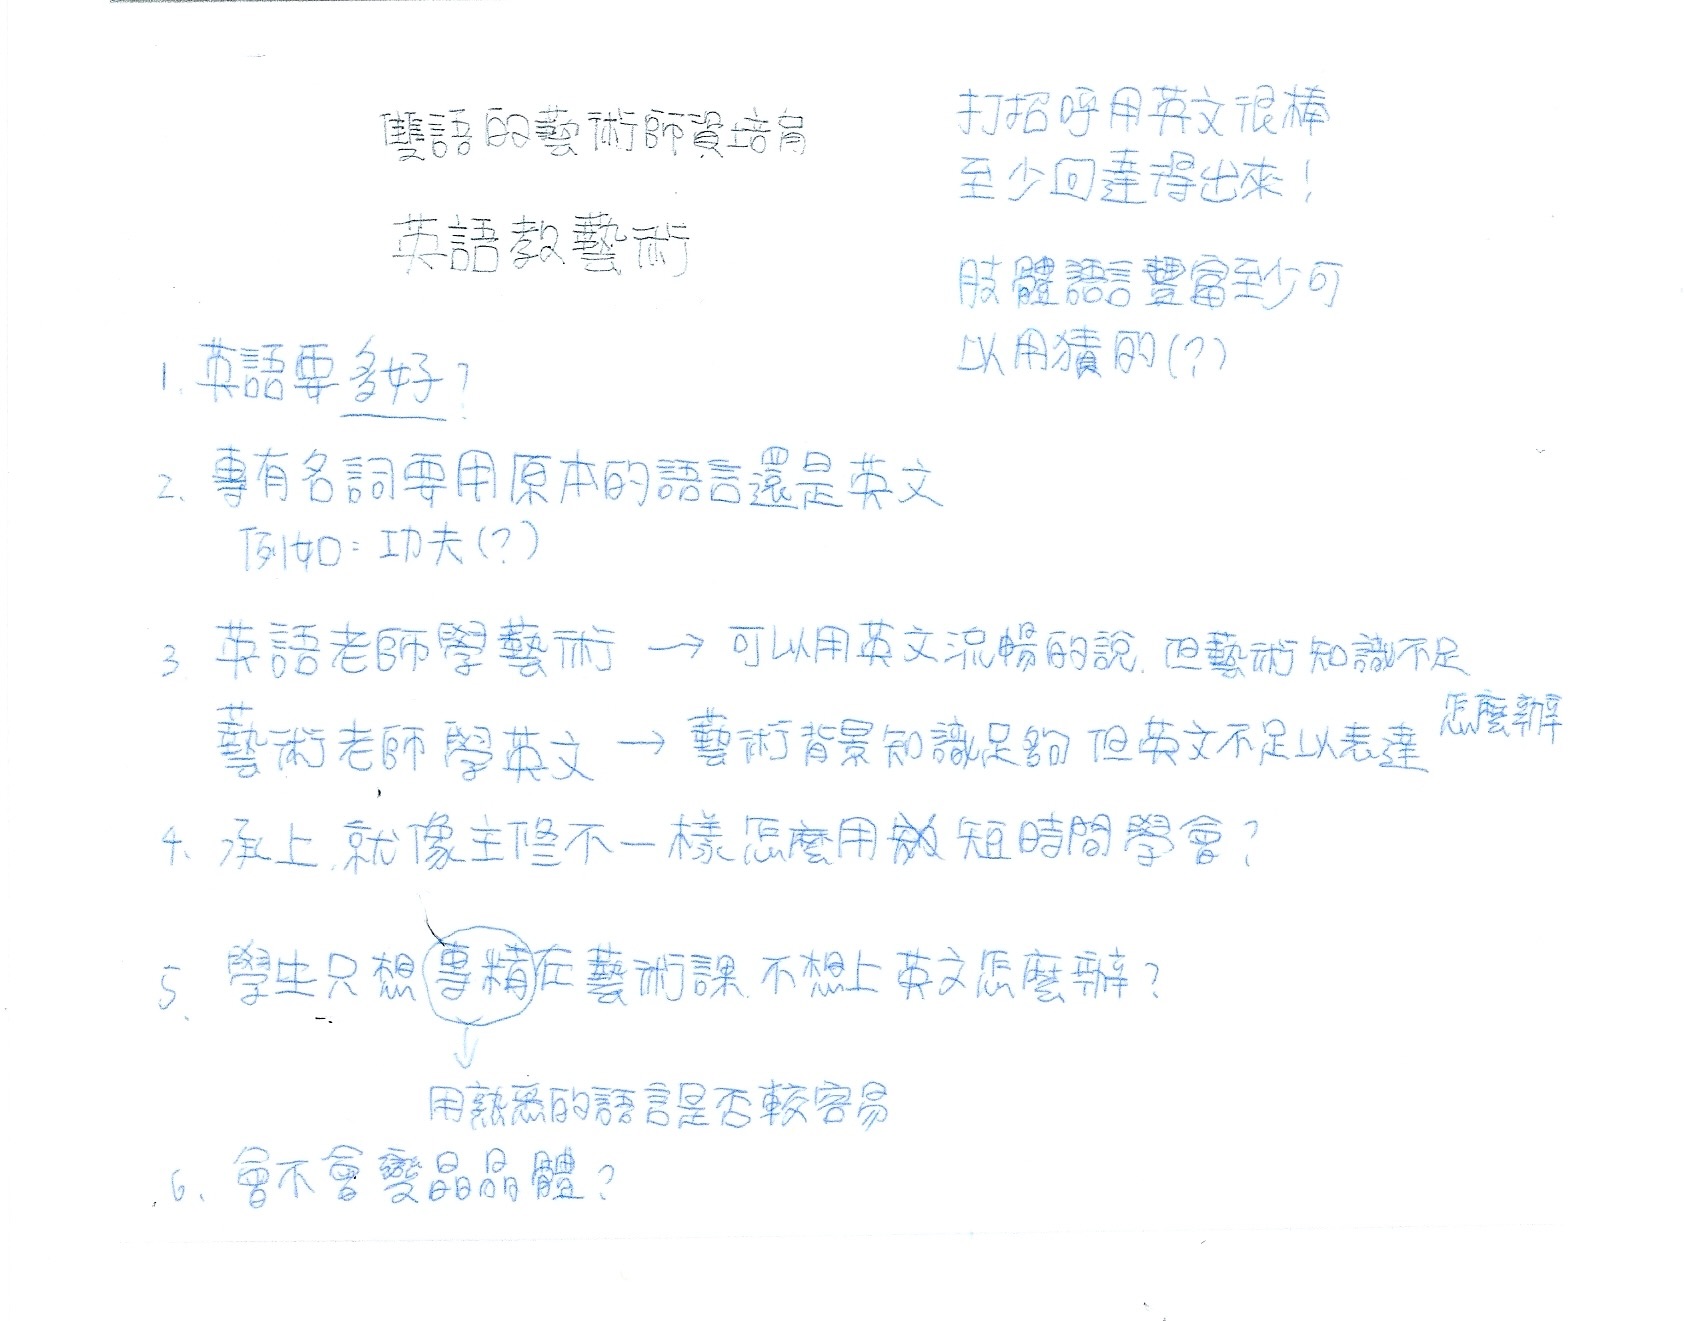 雙語的藝術師資培育
英語教藝術
打招呼用英文很棒
至少回達得出來！
肢體語言豐富至少可
以用猜的(?)
1. 英語要多好?
2. 專有名詞要用原本的語言還是英文
例如：功夫(?)
3. 英語老師學藝術 → 可以用英文流暢的說，但藝術知識不足
藝術老師學英文 → 藝術背景知識足夠 但英文不足以表達 怎麼辦
4. 承上，就像主修不一樣怎麼用 短時間學會?
5. 學生只想專精在藝術課，不想上英文怎麼辦?
↓
用熟悉的語言是否較容易
6. 會不會變晶晶體?